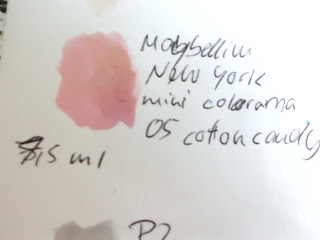 Maybelline
New York
mini colorama
05 cotton candy
7,5 ml
P2